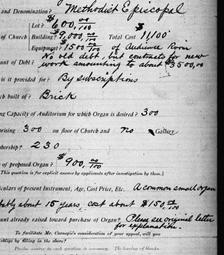 and Denomination? Methodist Episcopal
Lot? $600 00/100 $
of Church Building? $9,000 00/100 Total Cost 11,100
Equipment? 1500 00/100 of Audience Room
No old debt, but contracts for new
unt of Debt? work amounting to about $3500.00
is it provided for? By subscriptions
ch built of? Brick
ng Capacity of Auditorium for which Organ is desired? 300
rising 300 on floor of Church and no Gallery
bership? 230
of proposed Organ? $900. 00/100
(This question is for explicit answer by applicants after investigation by them.)
iculars of present Instrument, Age, Cost Price, Etc. A common small organ
ably about 15 years, cost about $150. 00/100
unt already raised toward purchase of Organ? Please see original letter
for explanation.
To facilitate Mr. Carnegie's consideration of your appeal, will you